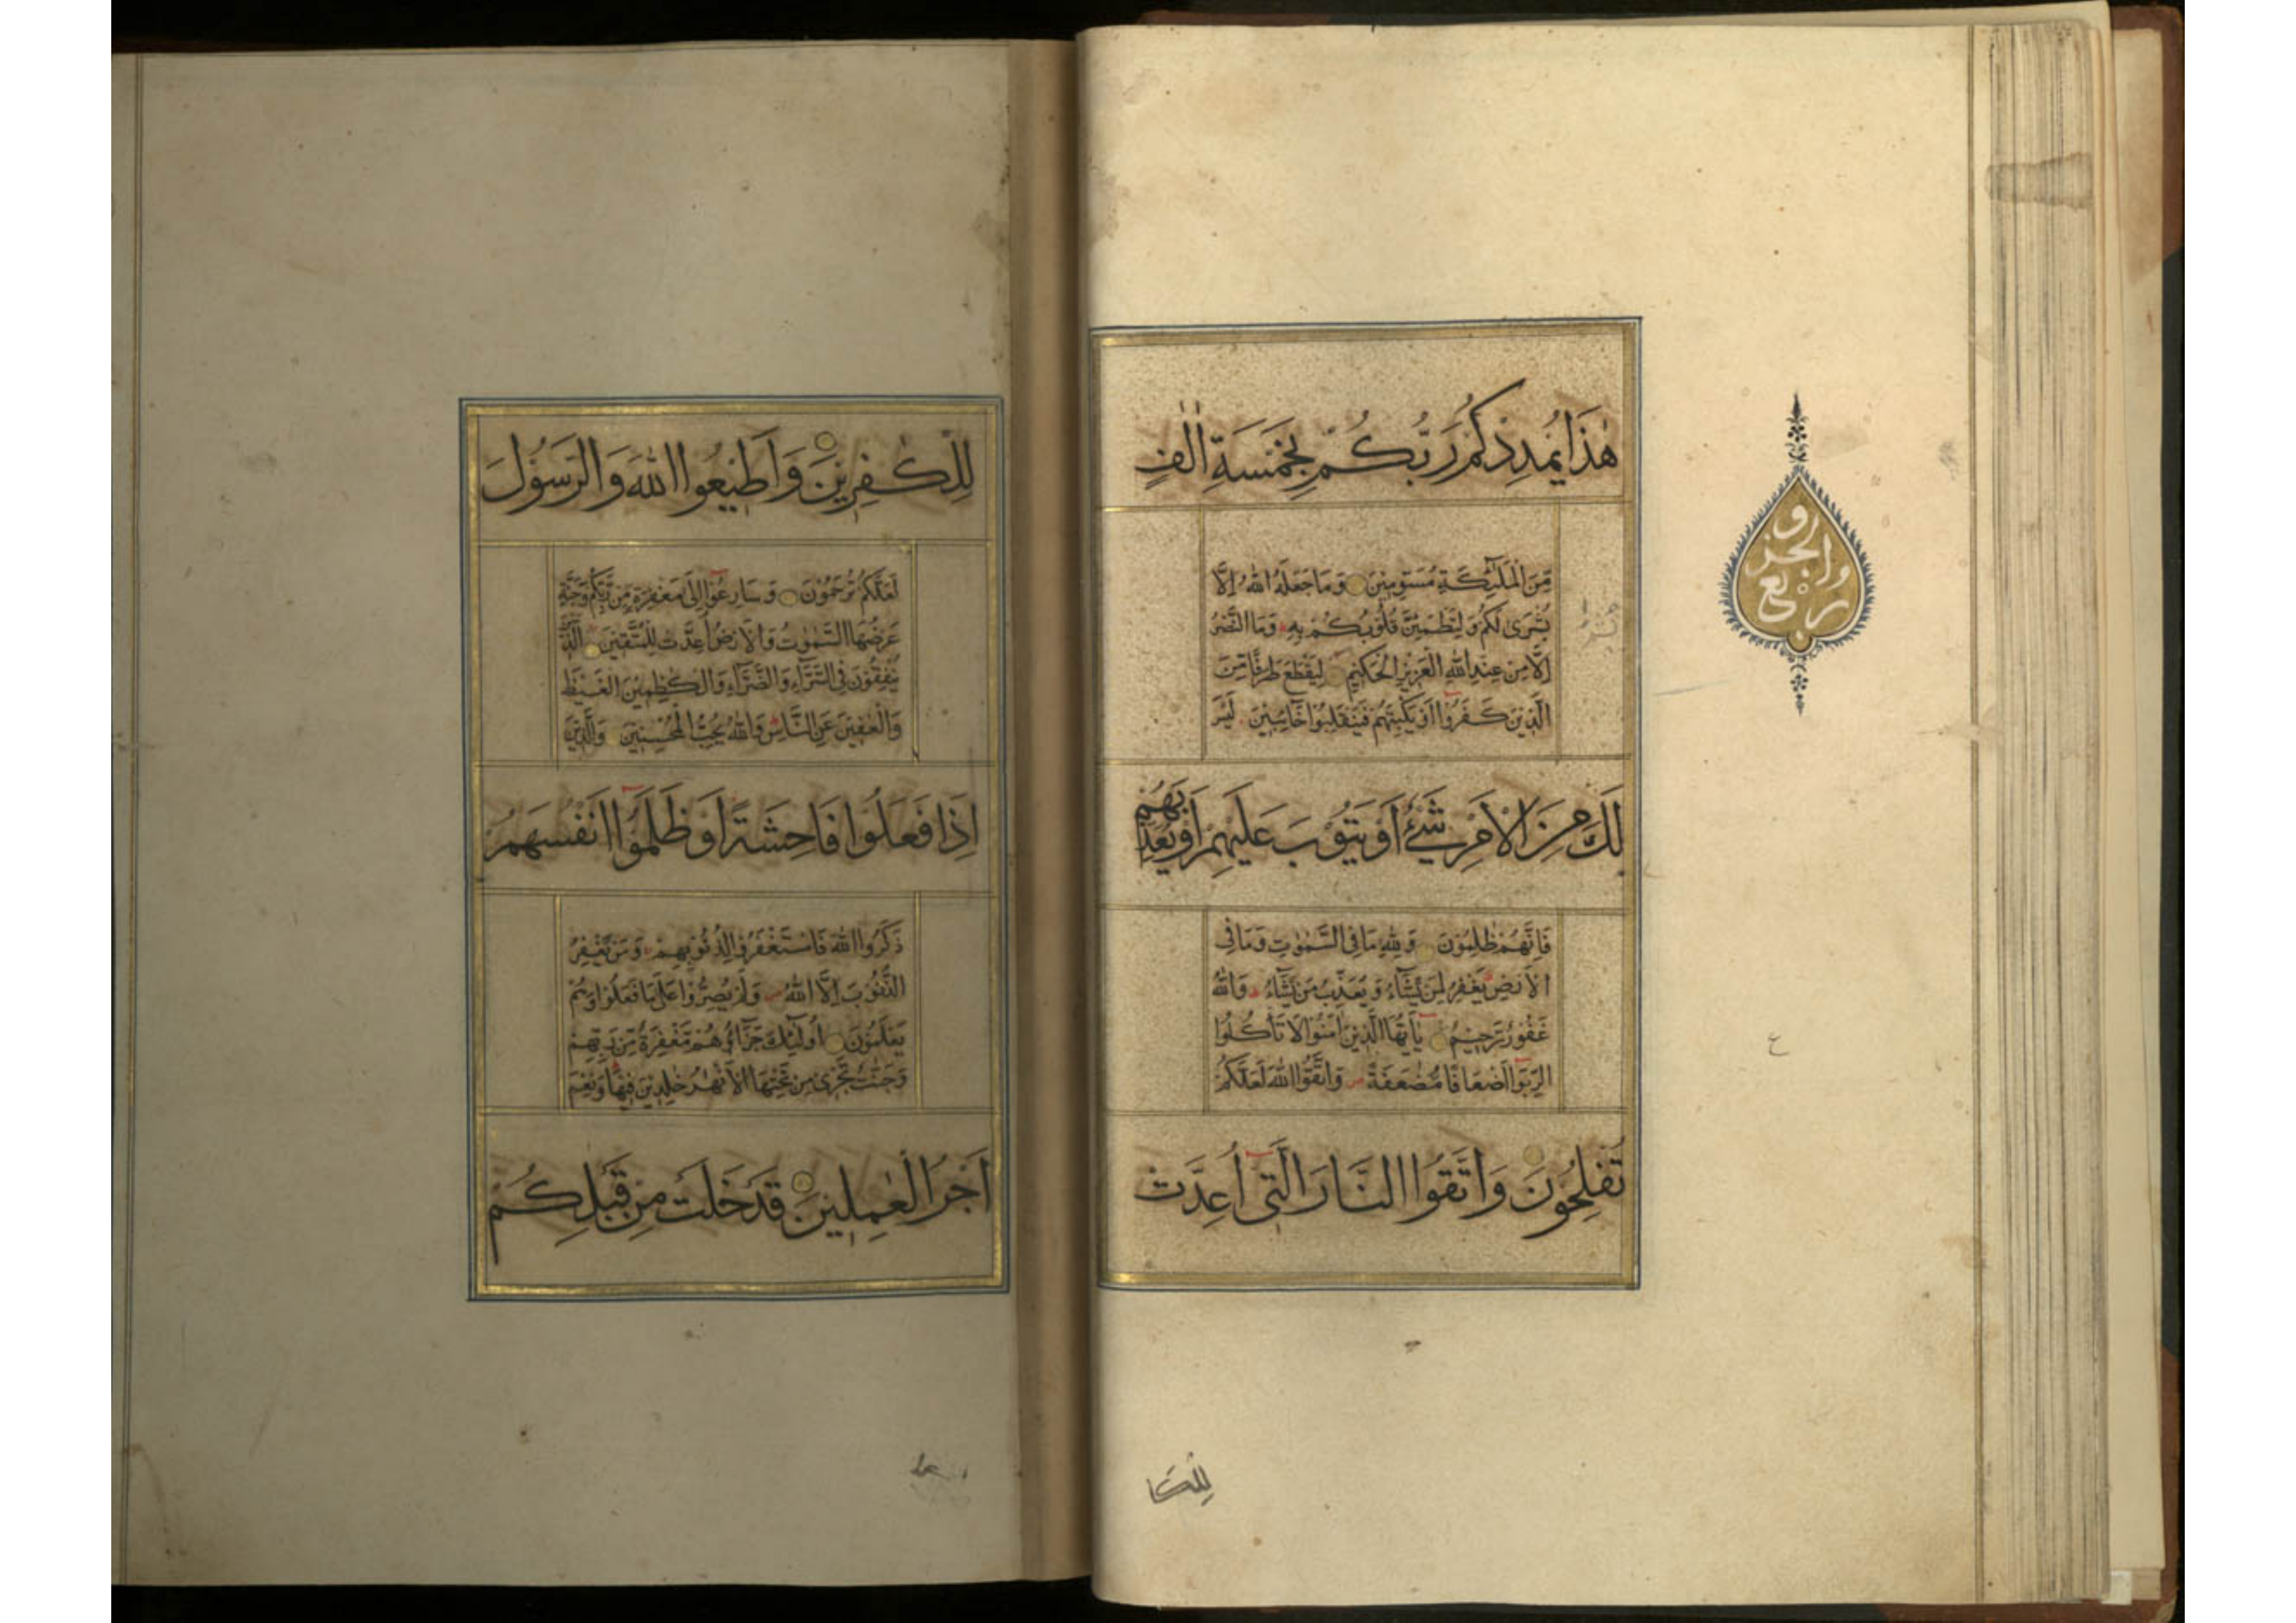 هٰذَا يُمْدِدْكُمْ رَبُّكُمْ بِخَمْسَةِ اٰلٰفٍ
مِّنَ الْمَلٰٓئِكَةِ مُسَوِّمِيْنَ وَمَا جَعَلَهُ اللّٰهُ اِلَّا
بُشْرٰى لَكُمْ وَلِتَطْمَئِنَّ قُلُوْبُكُمْ بِهٖ وَمَا النَّصْرُ
اِلَّا مِنْ عِنْدِ اللّٰهِ الْعَزِيْزِ الْحَكِيْمِ لِيَقْطَعَ طَرَفًا مِّنَ
الَّذِيْنَ كَفَرُوْٓا اَوْ يَكْبِتَهُمْ فَيَنْقَلِبُوْا خَآئِبِيْنَ لَيْسَ
لَكَ مِنَ الْاَمْرِ شَىْءٌ اَوْ يَتُوْبَ عَلَيْهِمْ اَوْ يُعَذِّبَهُمْ
فَاِنَّهُمْ ظٰلِمُوْنَ وَلِلّٰهِ مَا فِى السَّمٰوٰتِ وَمَا فِى
الْاَرْضِ يَغْفِرُ لِمَنْ يَّشَآءُ وَيُعَذِّبُ مَنْ يَّشَآءُ وَاللّٰهُ
غَفُوْرٌ رَّحِيْمٌ يٰٓاَيُّهَا الَّذِيْنَ اٰمَنُوْا لَا تَاْكُلُوا
الرِّبٰٓوا اَضْعَافًا مُّضٰعَفَةً وَاتَّقُوا اللّٰهَ لَعَلَّكُمْ
تُفْلِحُوْنَ وَاتَّقُوا النَّارَ الَّتِىْٓ اُعِدَّتْ
للكا
لِلْكٰفِرِيْنَ وَاَطِيْعُوا اللّٰهَ وَالرَّسُوْلَ
لَعَلَّكُمْ تُرْحَمُوْنَ وَسَارِعُوْٓا اِلٰى مَغْفِرَةٍ مِّنْ رَّبِّكُمْ وَجَنَّةٍ
عَرْضُهَا السَّمٰوٰتُ وَالْاَرْضُ اُعِدَّتْ لِلْمُتَّقِيْنَ الَّذِيْنَ
يُنْفِقُوْنَ فِى السَّرَّآءِ وَالضَّرَّآءِ وَالْكٰظِمِيْنَ الْغَيْظَ
وَالْعَافِيْنَ عَنِ النَّاسِ وَاللّٰهُ يُحِبُّ الْمُحْسِنِيْنَ وَالَّذِيْنَ
اِذَا فَعَلُوْا فَاحِشَةً اَوْ ظَلَمُوْٓا اَنْفُسَهُمْ
ذَكَرُوا اللّٰهَ فَاسْتَغْفَرُوْا لِذُنُوْبِهِمْ وَمَنْ يَّغْفِرُ
الذُّنُوْبَ اِلَّا اللّٰهُ وَلَمْ يُصِرُّوْا عَلٰى مَا فَعَلُوْا وَهُمْ
يَعْلَمُوْنَ اُولٰٓئِكَ جَزَآؤُهُمْ مَّغْفِرَةٌ مِّنْ رَّبِّهِمْ
وَجَنّٰتٌ تَجْرِىْ مِنْ تَحْتِهَا الْاَنْهٰرُ خٰلِدِيْنَ فِيْهَا وَنِعْمَ
اَجْرُ الْعٰمِلِيْنَ قَدْ خَلَتْ مِنْ قَبْلِكُمْ